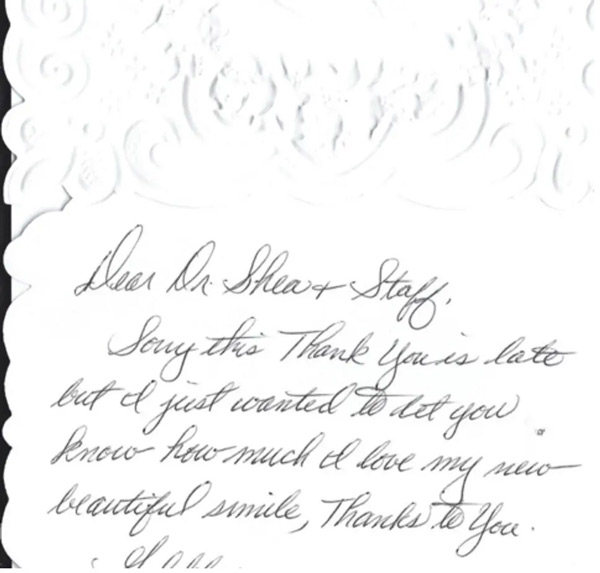 Dear Dr. Shea + Staff,
Sorry this Thank You is late
but I just wanted to let you
know how much I love my new
beautiful smile, Thanks to You.